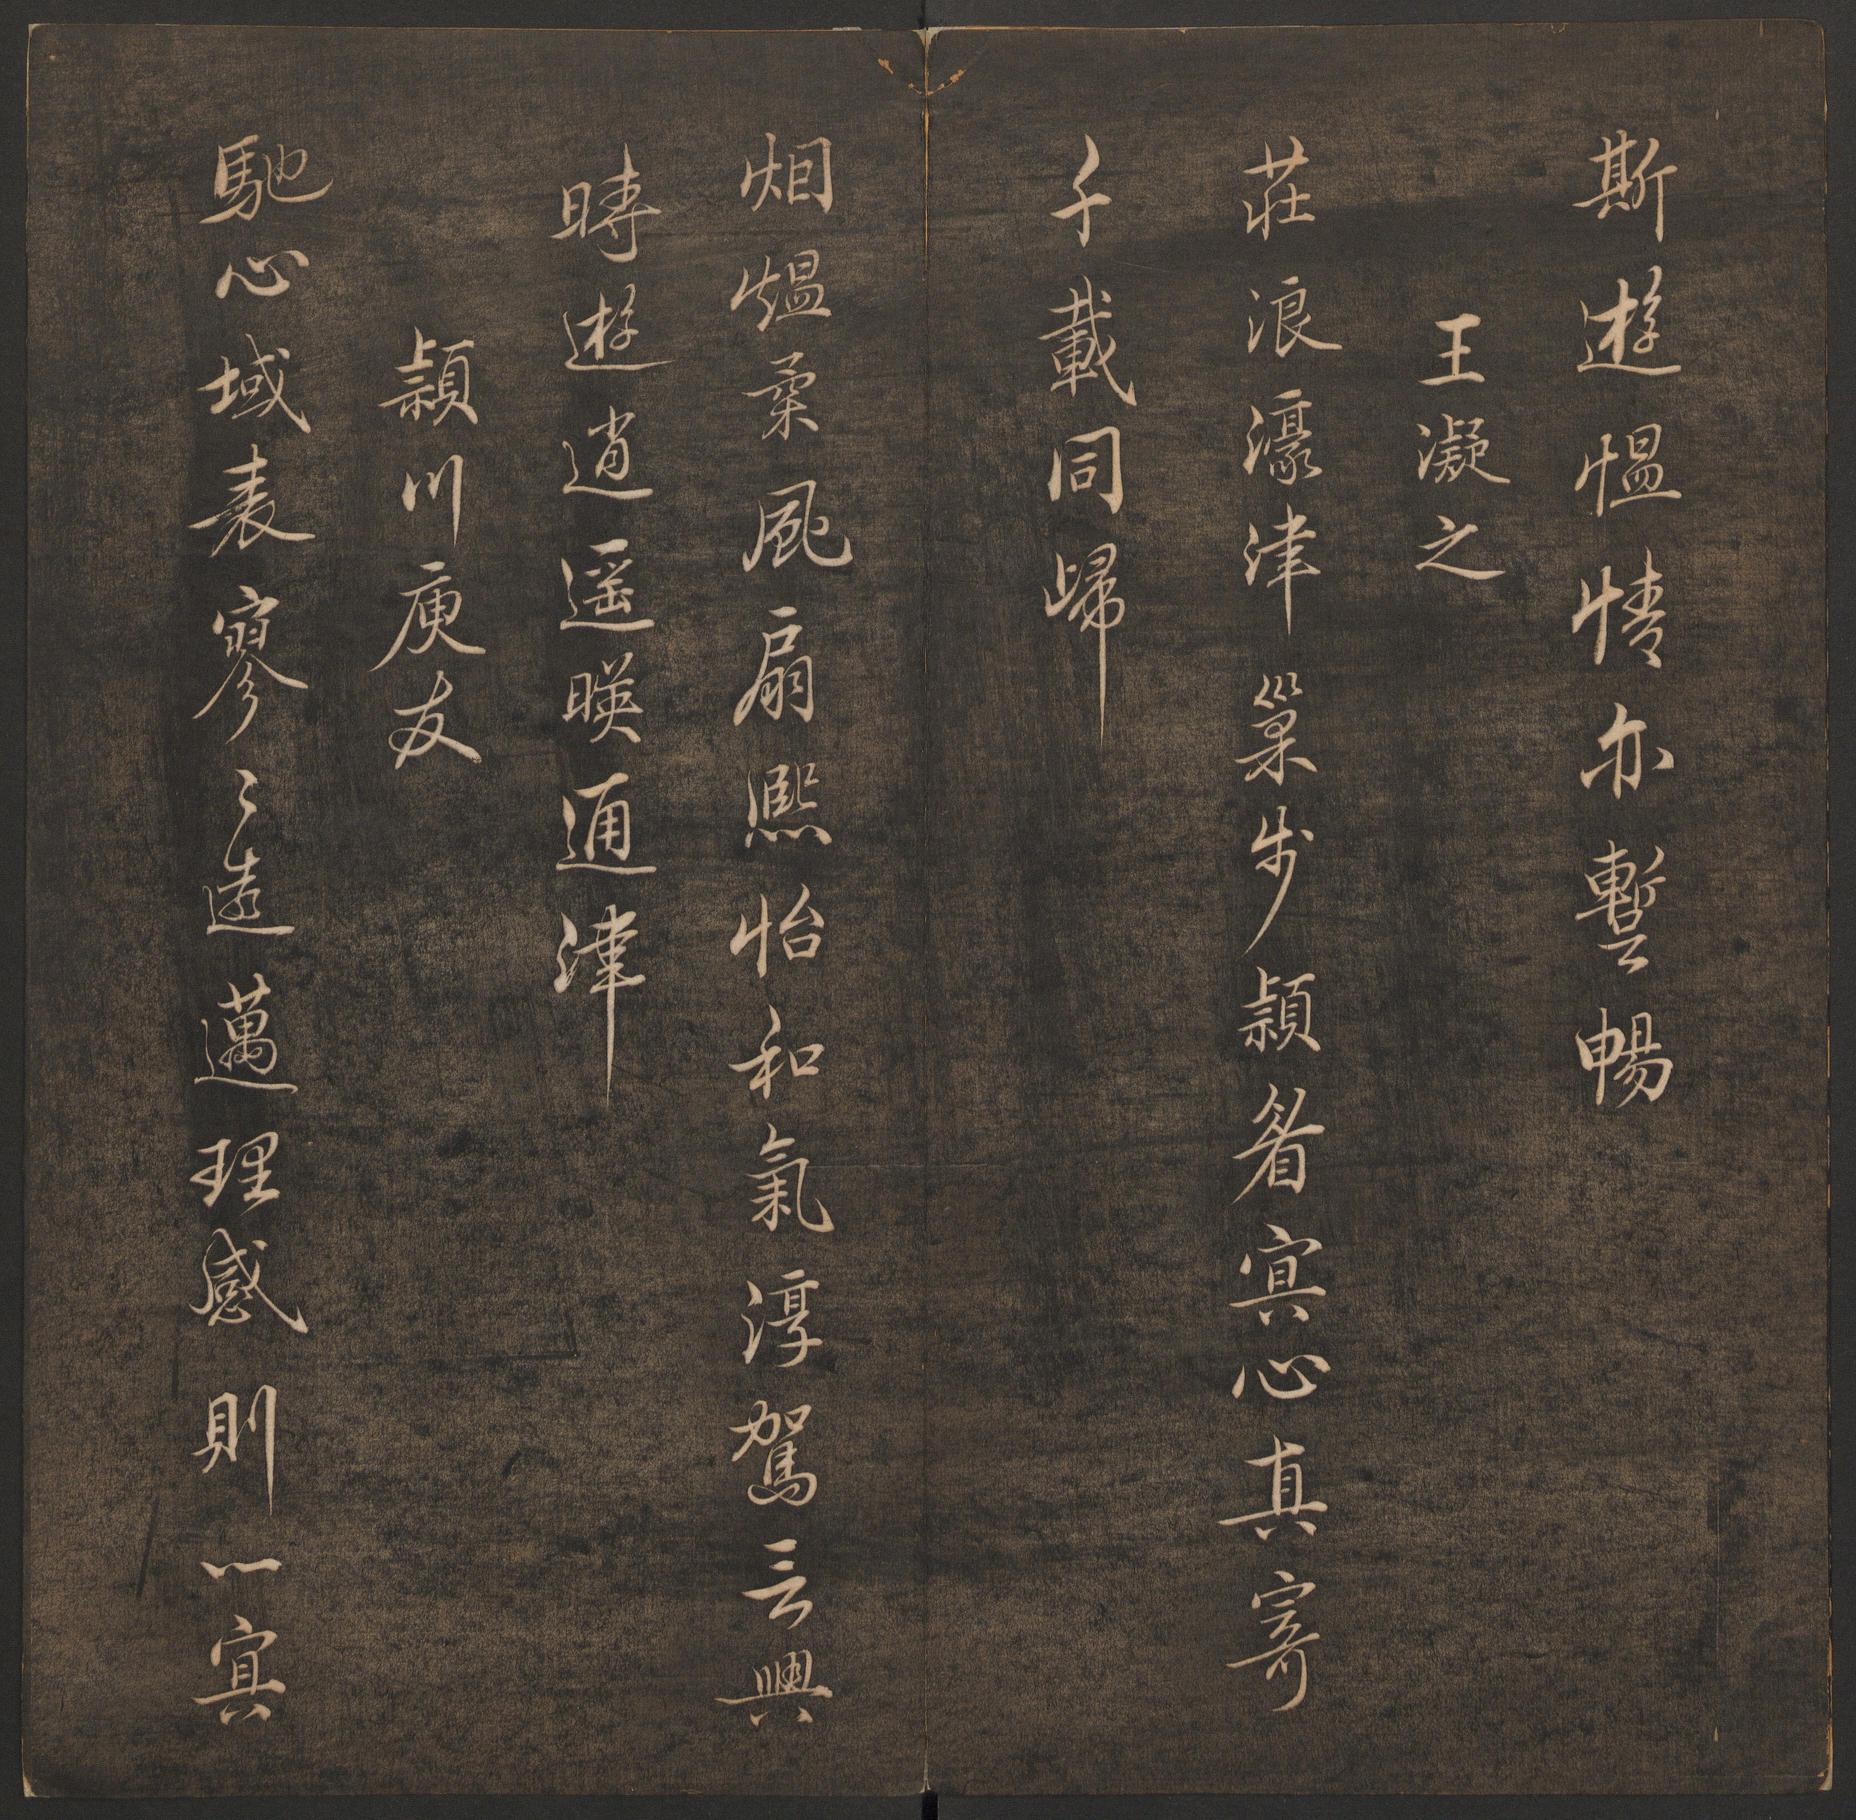 斯遊愠情亦暫暢
王凝之
莊浪濠津巢步頴眉冥心真寄
千載同歸
烟熅柔風扇熙怡和氣淳駕言興
時遊逍遥暎通津
頴川庾友
馳心域表寥〻遠邁理感則一冥